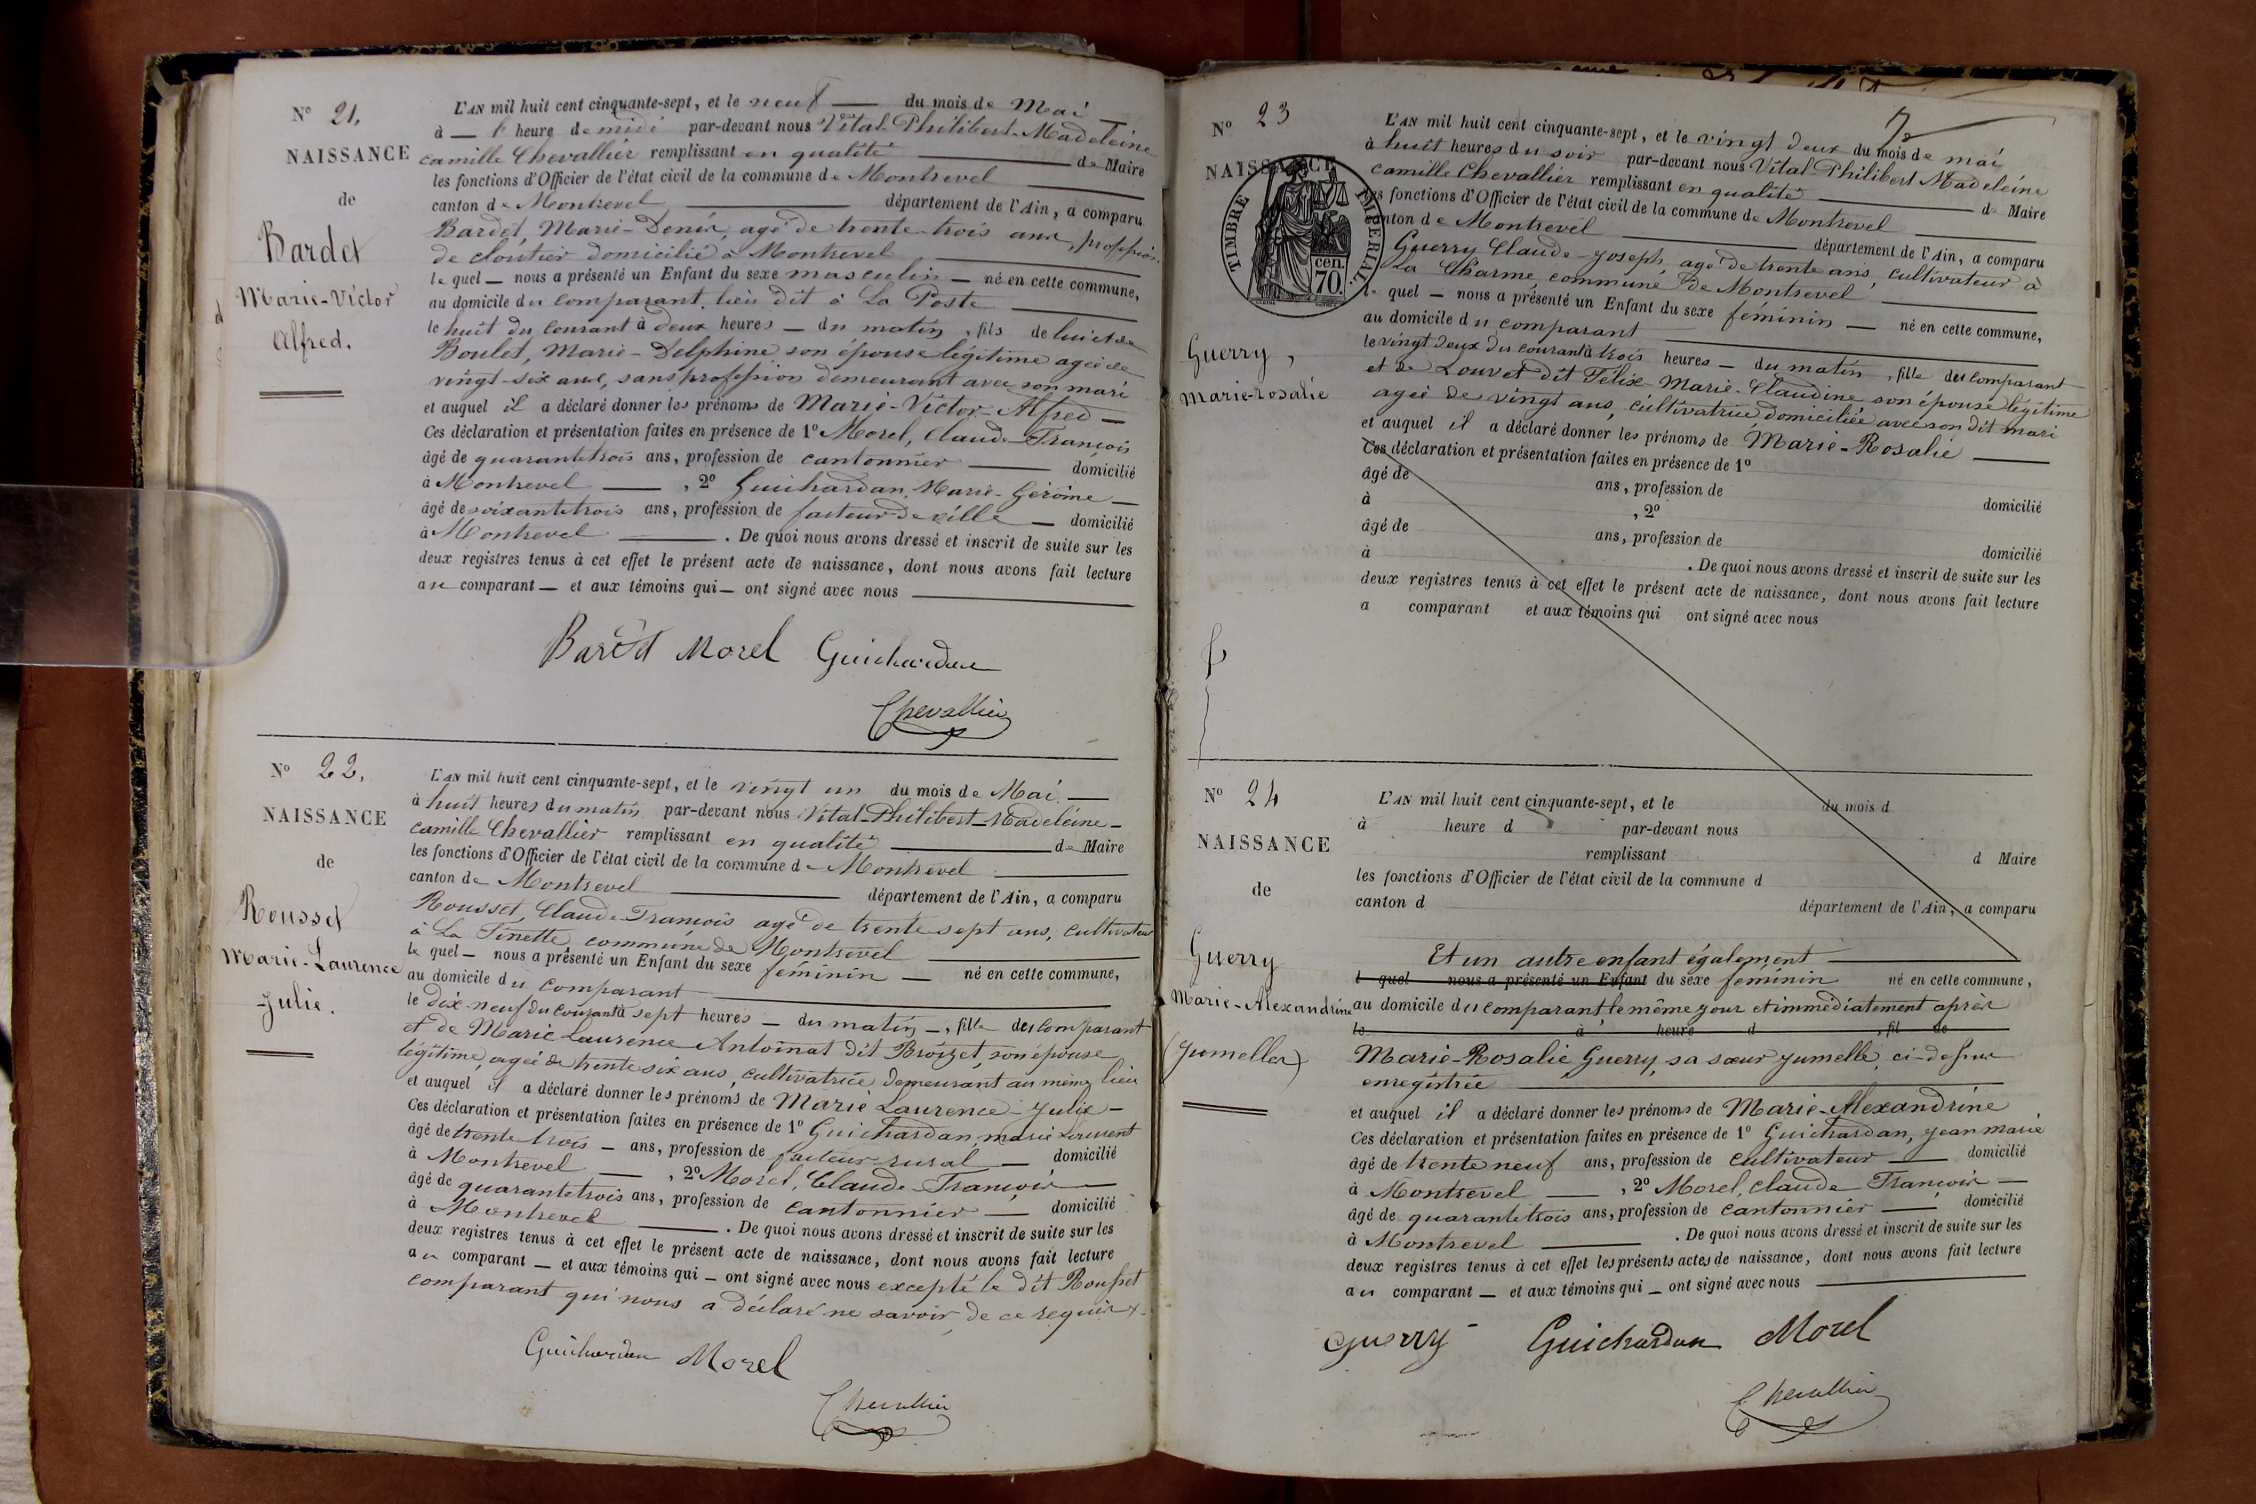 N° 21.
NAISSANCE
de
Bardet
Marie-Victor
Alfred.
L'AN mil huit cent cinquante-sept, et le neuf — du mois de Mai —
à — heure de midi par-devant nous Vital-Philibert-Madeleine
Camille Chevallier remplissant en qualité — de Maire
les fonctions d'Officier de l'état civil de la commune de Montrevel —
canton de Montrevel — département de l'Ain, a comparu
Bardet, Marie-Denis, agé de trente-trois ans, profession
de cloutier domicilié à Montrevel —
le quel — nous a présenté un Enfant du sexe masculin — né en cette commune,
au domicile du comparant, lieu dit à La Poste —
le huit du courant à deux heures — du matin, fils de lui et de
Boulet, Marie-Delphine son épouse légitime agée de
vingt-six ans, sans profession demeurant avec son mari
et auquel il a déclaré donner les prénoms de Marie-Victor-Alfred —
Ces déclaration et présentation faites en présence de 1° Morel, Claude-François
âgé de quarante trois ans, profession de cantonnier — domicilié
à Montrevel — , 2° Guichardan, Marie-Gérôme —
âgé de soixante trois ans, profession de facteur de ville — domicilié
à Montrevel — . De quoi nous avons dressé et inscrit de suite sur les
deux registres tenus à cet effet le présent acte de naissance, dont nous avons fait lecture
au comparant — et aux témoins qui — ont signé avec nous —
Bardet Morel Guichardan
Chevallier
N° 22.
NAISSANCE
de
Rousset
Marie-Laurence
Julie.
L'AN mil huit cent cinquante-sept, et le vingt un du mois de Mai —
à huit heures du matin par-devant nous Vital-Philibert-Madeleine-
Camille Chevallier remplissant en qualité — de Maire
les fonctions d'Officier de l'état civil de la commune de Montrevel —
canton de Montrevel — département de l'Ain, a comparu
Rousset, Claude-François agé de trente sept ans, cultivateur
à La Tinette commune de Montrevel —
le quel — nous a présenté un Enfant du sexe féminin — né en cette commune,
au domicile du comparant —
le dix-neuf du courant à sept heures — du matin —, fille du comparant
et de Marie Laurence Antoinat dit Broizet, son épouse
légitime, agée de trente six ans, cultivatrice demeurant au même lieu
et auquel il a déclaré donner les prénoms de Marie Laurence-Julie —
Ces déclaration et présentation faites en présence de 1° Guichardan, marie Laurent
âgé de trente trois — ans, profession de facteur rural — domicilié
à Montrevel — , 2° Morel, Claude-François —
âgé de quarante trois ans, profession de cantonnier — domicilié
à Montrevel — . De quoi nous avons dressé et inscrit de suite sur les
deux registres tenus à cet effet le présent acte de naissance, dont nous avons fait lecture
au comparant — et aux témoins qui — ont signé avec nous excepté le dit Rousset
comparant qui nous a déclaré ne savoir, de ce requis.
Guichardan Morel
Chevallier
N° 23
NAISSANCE
TIMBRE IMPERIAL.
cen.
70.
Guerry,
Marie-rosalie
L'AN mil huit cent cinquante-sept, et le vingt deux du mois de mai
à huit heures du soir par-devant nous Vital Philibert Madeleine
Camille Chevallier remplissant en qualité — de Maire
les fonctions d'Officier de l'état civil de la commune de Montrevel —
canton de Montrevel — département de l'Ain, a comparu
Guerry Claude-Joseph, agé de trente ans, cultivateur à
La Charme, commune de Montrevel —
le quel — nous a présenté un Enfant du sexe féminin — né en cette commune,
au domicile du comparant —
le vingt deux du courant à trois heures — du matin, fille du comparant
et de Louvet dit Félix-Marie-Claudine son épouse légitime
agée de vingt ans, cultivatrice, domiciliée avec son dit mari
et auquel il a déclaré donner les prénoms de Marie-Rosalie —
Ces déclaration et présentation faites en présence de 1°
âgé de ans, profession de domicilié
à , 2°
âgé de ans, profession de domicilié
à . De quoi nous avons dressé et inscrit de suite sur les
deux registres tenus à cet effet le présent acte de naissance, dont nous avons fait lecture
a comparant et aux témoins qui ont signé avec nous
N° 24
NAISSANCE
de
Guerry
Marie-Alexandrine
(Jumelles)
L'AN mil huit cent cinquante-sept, et le du mois d
à heure d par-devant nous
remplissant d Maire
les fonctions d'Officier de l'état civil de la commune d
canton d département de l'Ain, a comparu
Et un autre enfant également —
l quel nous a présenté un Enfant du sexe féminin né en cette commune,
au domicile du comparant, le même jour et immédiatement après
le à heure d , fil de
Marie-Rosalie Guerry, sa sœur jumelle, ci-dessus
enregistrée —
et auquel il a déclaré donner les prénoms de Marie-Alexandrine
Ces déclaration et présentation faites en présence de 1° Guichardan, Jean Marie
âgé de trente neuf ans, profession de cultivateur — domicilié
à Montrevel — , 2° Morel, Claude François —
âgé de quarante trois ans, profession de cantonnier — domicilié
à Montrevel — . De quoi nous avons dressé et inscrit de suite sur les
deux registres tenus à cet effet les présents actes de naissance, dont nous avons fait lecture
au comparant — et aux témoins qui — ont signé avec nous —
Guerry Guichardan Morel
Chevallier